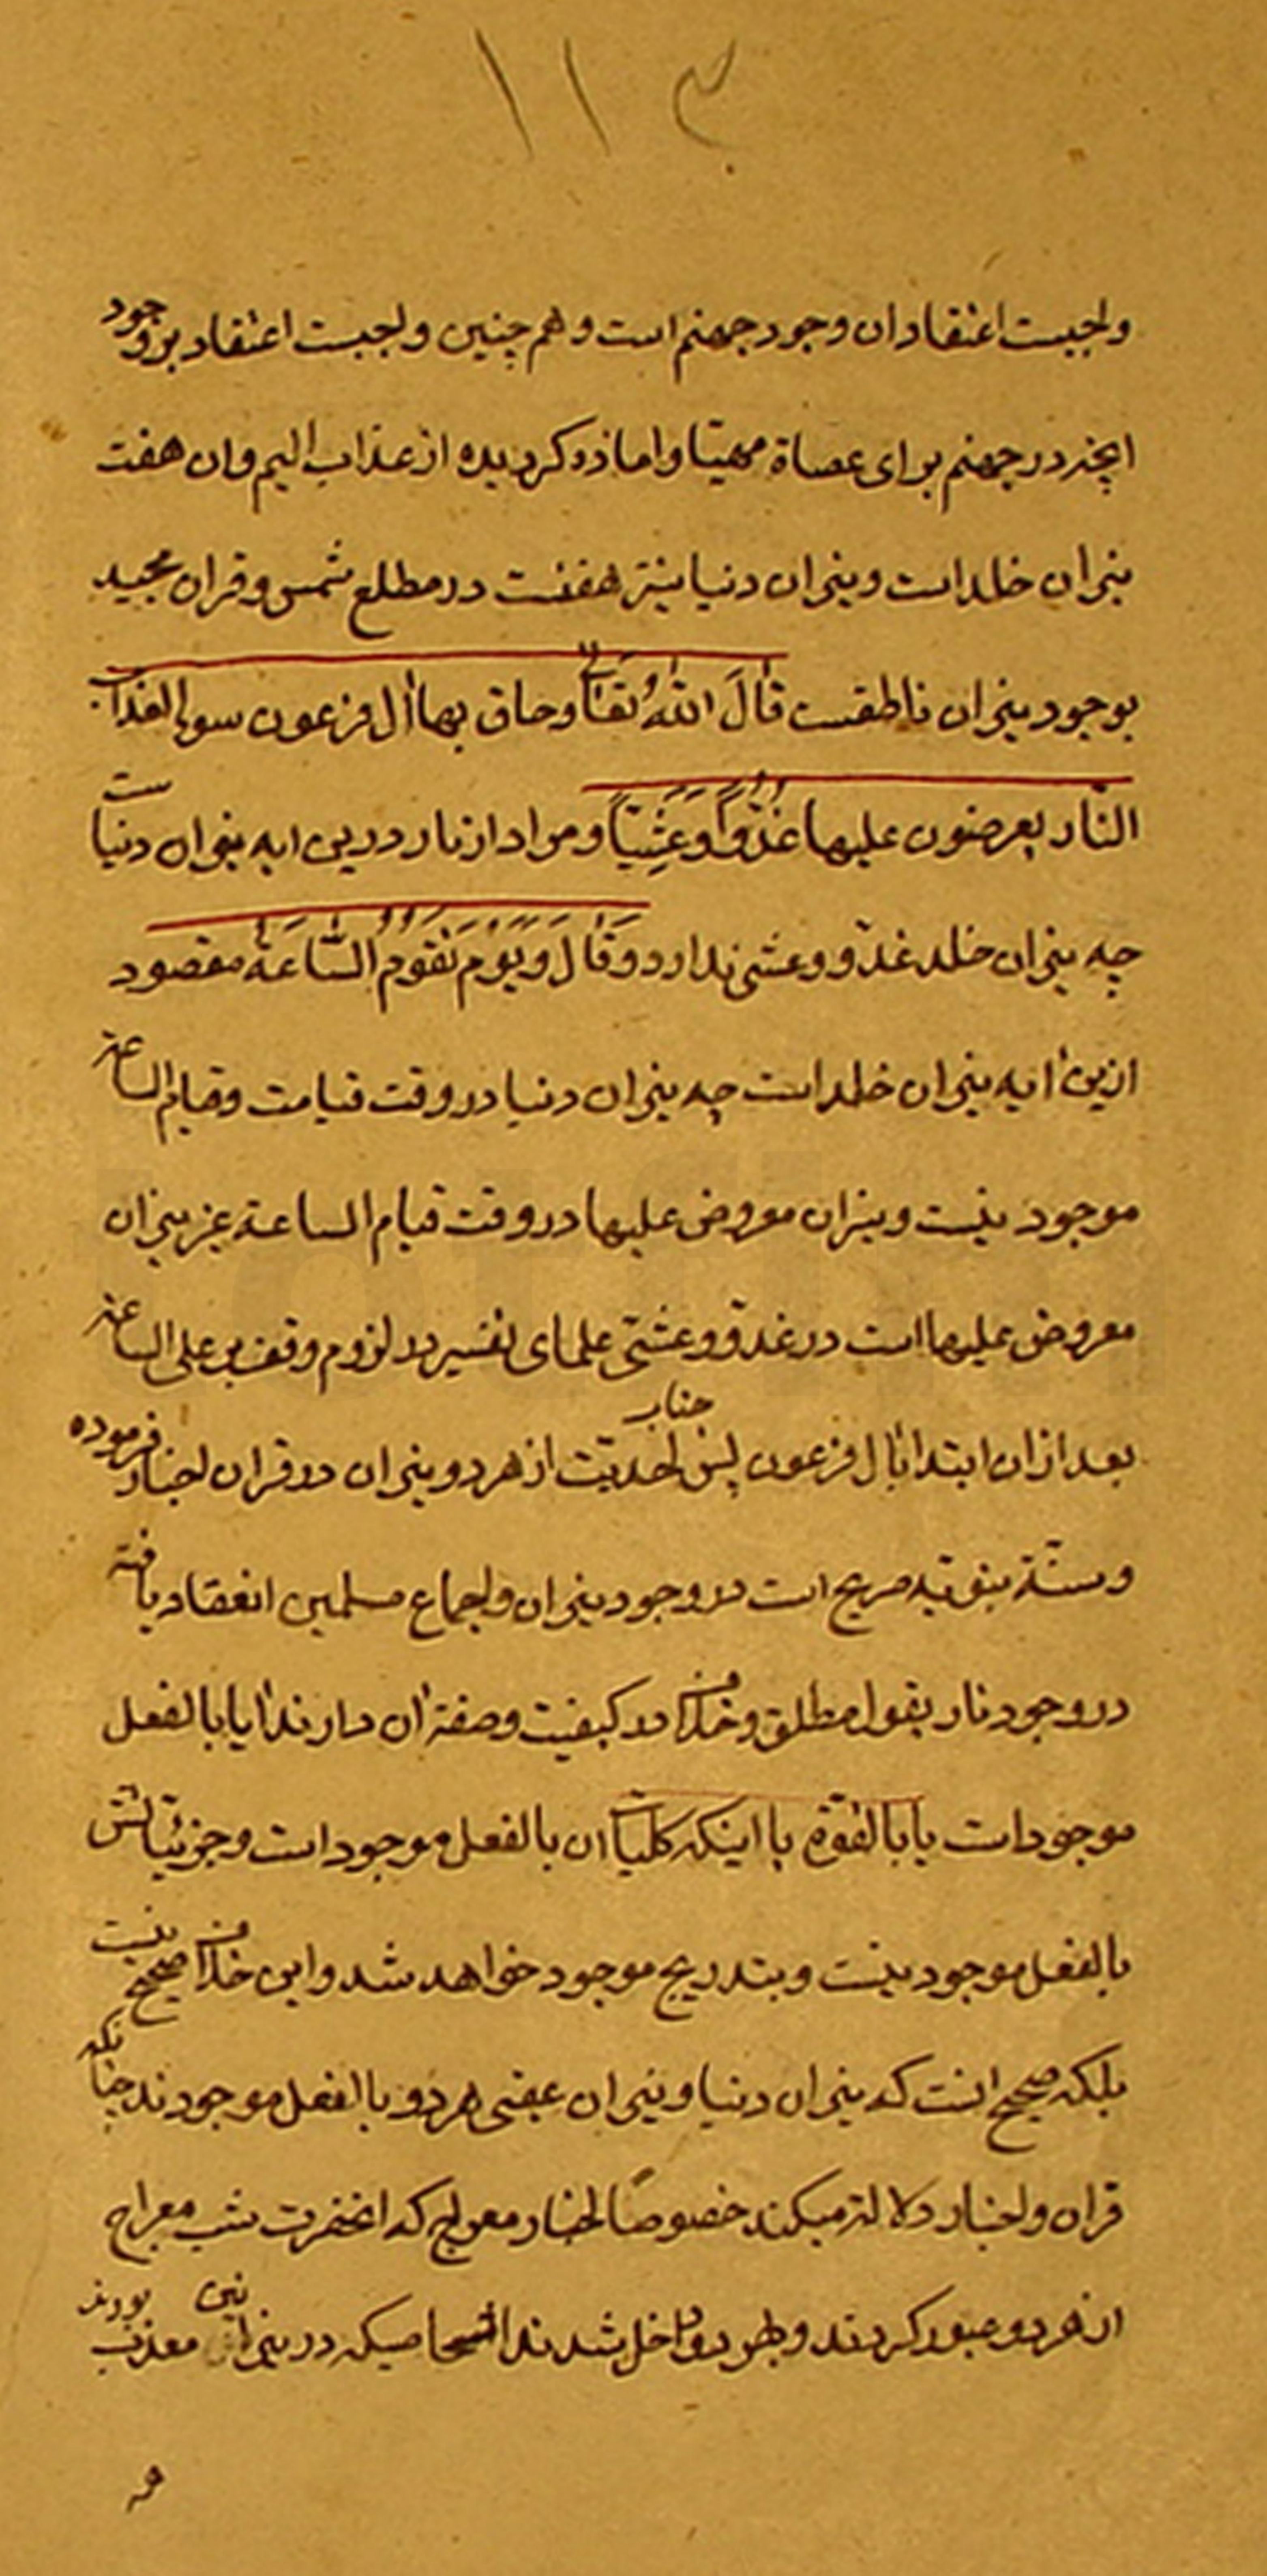 ١١٣
واجبست اعتقاد ان وجود جهنم است و هم چنین واجبست اعتقاد بر وجود
انچه در جهنم برای عصاة مهیا و اماده کردیده از عذاب الیم و ان هفت
نیران خلد است و نیران دنیا نیز هفتست در مطلع شمس و قران مجید
بوجود نیران ناطقست قال الله تعالی وحاق بهاال فرعون سوا العذاب
النار یعرضون علیها غدوا وعشیا و مراد از نار درین ایه نیران دنیاست
چه نیران خلد غدو و عشی ندارد و قال ویوم تقوم الساعة مقصود
ازین ایه نیران خلد است چه نیران دنیا در وقت قیامت و قیام الساعة
موجود نیست و نیران معروض علیها در وقت قیام الساعة غیر نیران
معروض علیها است در غدو و عشی علمای تفسیر در لزوم وقف بر علی الساعة
بعد از ان ابتدا بال فرعون پس جناب احدیت از هر دو نیران در قران اخبار فرموده
و سنة نبویه صریح است در وجود نیران و اجماع مسلمین انعقاد یافته
در وجود نار بقول مطلق و خلاف در کیفیت و صفة ان دارند ایا بالفعل
موجود است یا بالقوة یا اینکه کلیا ان بالفعل موجود است و جزئیاتش
بالفعل موجود نیست و بتدریج موجود خواهد شد و این خلاف صحیح نیست
بلکه صحیح انست که نیران دنیا و نیران عقبی هر دو بالفعل موجودند چنانکه
قران و اخبار دلالة میکند خصوصا اخبار معراج که انحضرت شب معراج
از هر دو عبور کردند و بهر دو داخل شدند اشخاصیکه در نیران معذب بودند